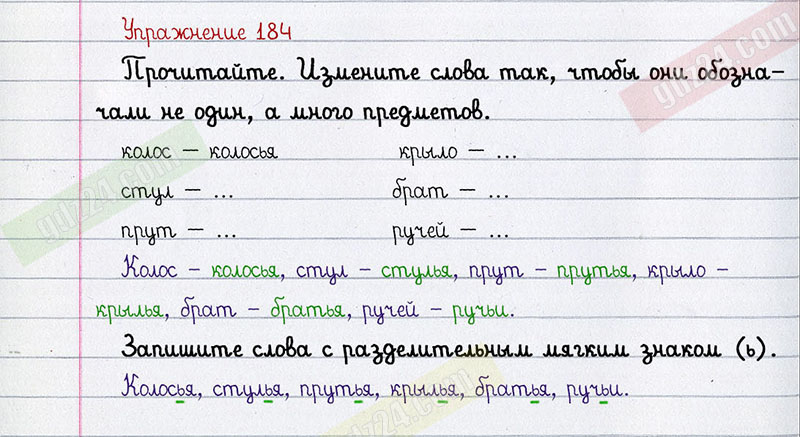 Упражнение 184
Прочитайте. Измените слова так, чтобы они обозна-
чали не один, а много предметов.
колос – колосья крыло – ...
стул – ... брат – ...
прут – ... ручей – ...
Колос – колосья, стул – стулья, прут – прутья, крыло –
крылья, брат – братья, ручей – ручьи.
Запишите слова с разделительным мягким знаком (ь).
Колосья, стулья, прутья, крылья, братья, ручьи.
gdz24.com
gdz24.com
gdz24.com